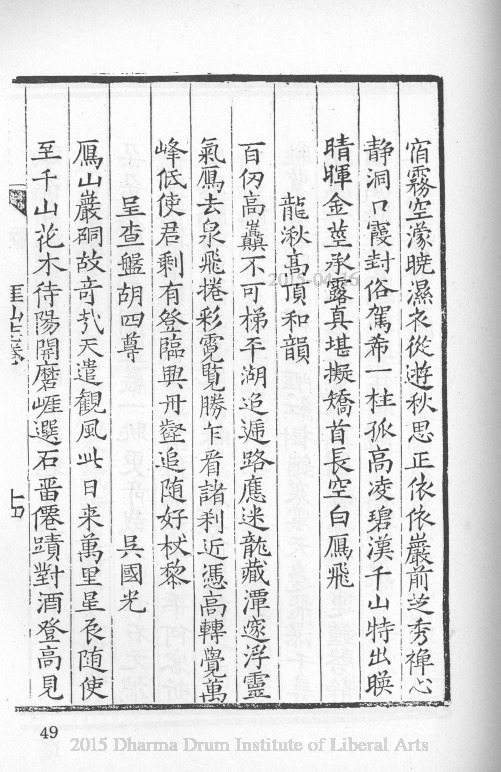 宿霧空濛曉濕衣從遊秋思正依依巖前芝秀禪心
静洞口霞封俗駕希一柱孤高凌碧漢千山特出暎
晴暉金莖承露真堪擬矯首長空白鴈飛
龍湫高頂和韻
百仞高巔不可梯平湖追遞路應迷龍藏潭邃浮靈
氣鴈去泉飛捲彩霓覧勝乍看諸刹近憑高轉覺萬
峰低使君剩有登臨興丹壑追随好杖藜
呈查盤胡四尊 吳國光
鴈山巖硐故竒㦲天遣觀風此日来萬里星辰随使
至千山花木待陽開磨崕選石畱僊蹟對酒登高見
49
2015-04-16
2015 Dharma Drum Institute of Liberal Arts